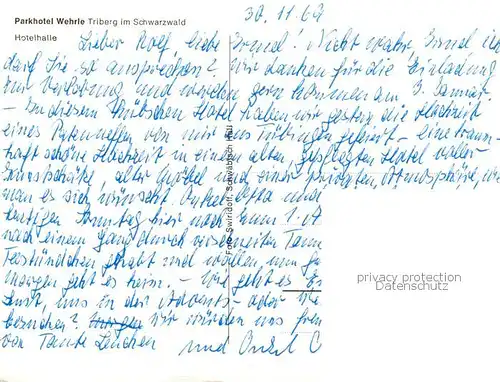 30.11.69
Parkhotel Wehrle Triberg im Schwarzwald
Hotelhalle
Lieber Rolf, liebe Irmel! Nicht wahr, Irmel ich
darf Sie so ansprechen? Wir danken für die Einladung
zur Verlobung und werden gern kommen am 3. Januar
- In diesem hübschen Hotel haben wir gestern die Hochzeit
eines Patenneffen von mir aus Tübingen gefeiert - eine traum-
haft schöne Hochzeit in einem alten, gepflegten Hotel voller
Kunstschätze, alter Möbel und einer privaten Atmosphäre, wie
man es sich wünscht. Onkel Otto und
heutigen Sonntag hier noch zum 1. A
nach einem Gang durch verschneiten Tann
Teestündchen gehabt und wollen zum
morgen geht es heim. - Wie geht es
Lust, uns in der Advents- oder We
besuchen? Wir würden uns freu
von Tante Lenchen und Onkel O
Foto Swiridoff, Schwäbisch Hall
privacy protection
Datenschutz